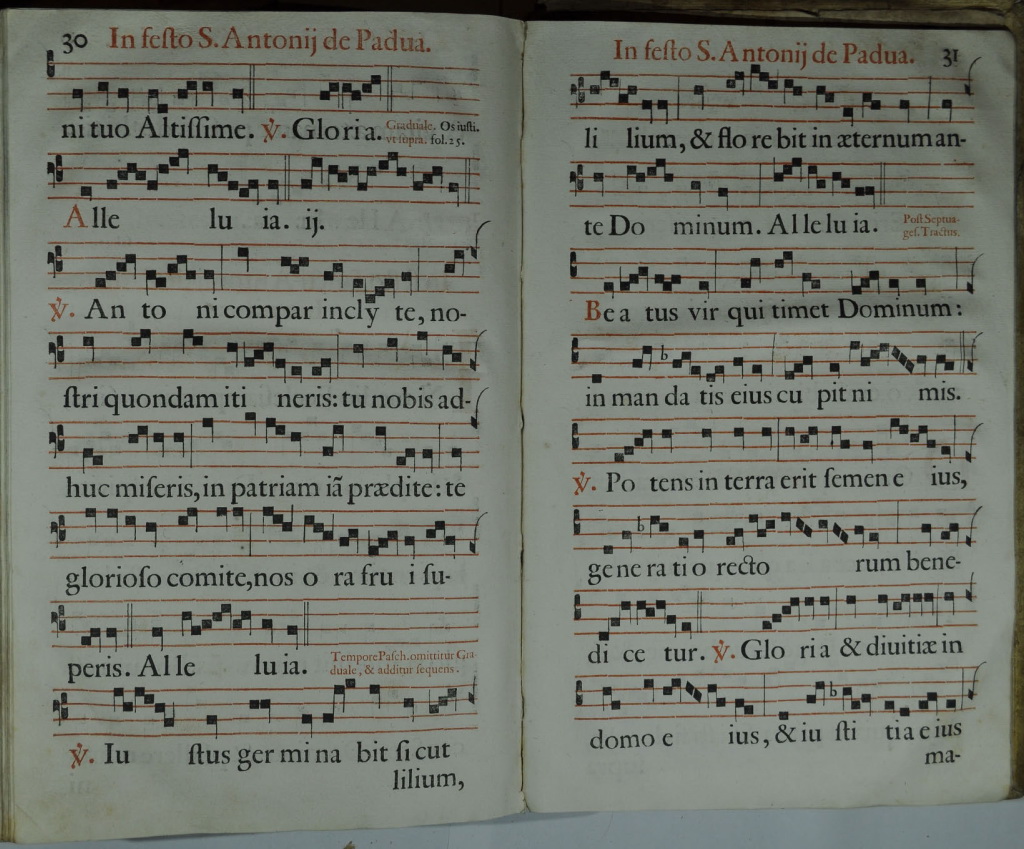 30 In feſto S. Antonij de Padua.
ni tuo Altiſſime. ℣. Glo ri a. Graduale. Os iuſti.
vt ſupra. fol. 25.
A lle lu ia. ij.
℣. An to ni compar incly te, no-
ſtri quondam iti neris: tu nobis ad-
huc miſeris, in patriam iã prædite: te
glorioſo comite, nos o ra fru i ſu-
peris. Al le lu ia. Tempore Paſch. omittitur Gra
duale, & additur ſequens.
℣. Iu ſtus ger mi na bit ſi cut
lilium,
In feſto S. Antonij de Padua. 31
li lium, & flo re bit in æternum an-
te Do minum. Al le lu ia. Poſt Septua-
geſ. Tractus.
Be a tus vir qui timet Dominum:
in man da tis eius cu pit ni mis.
℣. Po tens in terra erit ſemen e ius,
ge ne ra ti o recto rum bene-
di ce tur. ℣. Glo ri a & diuitiæ in
domo e ius, & iu ſti ti a e ius
ma-